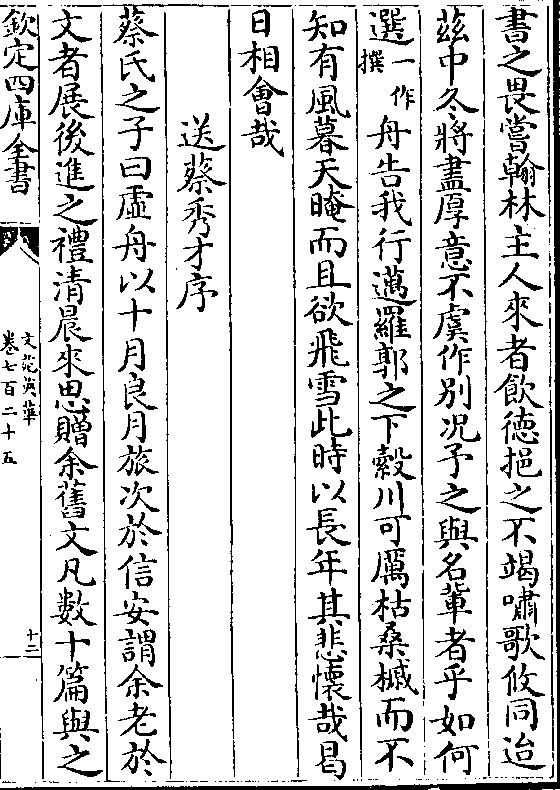 書之畏嘗翰林主人來者飲德挹之不竭嘯歌攸同迨
茲中冬將盡厚意不虞作別况予之與名輩者乎如何
選一作撰舟告我行邁羅郭之下縠川可厲枯桑槭而不
知有風暮天晻而且欲飛雪此時以長年其悲懷哉曷
日相㑹哉
送蔡秀才序
蔡氏之子曰虛舟以十月良月旅次於信安謂余老於
文者展後進之禮清晨來思贈余舊文凡數十篇與之
欽定四庫全書
文苑英華
卷七百二十五
十二